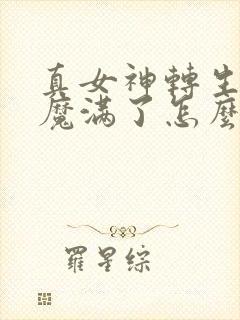 真女神轉生
魔滿了怎麼
羅星綜